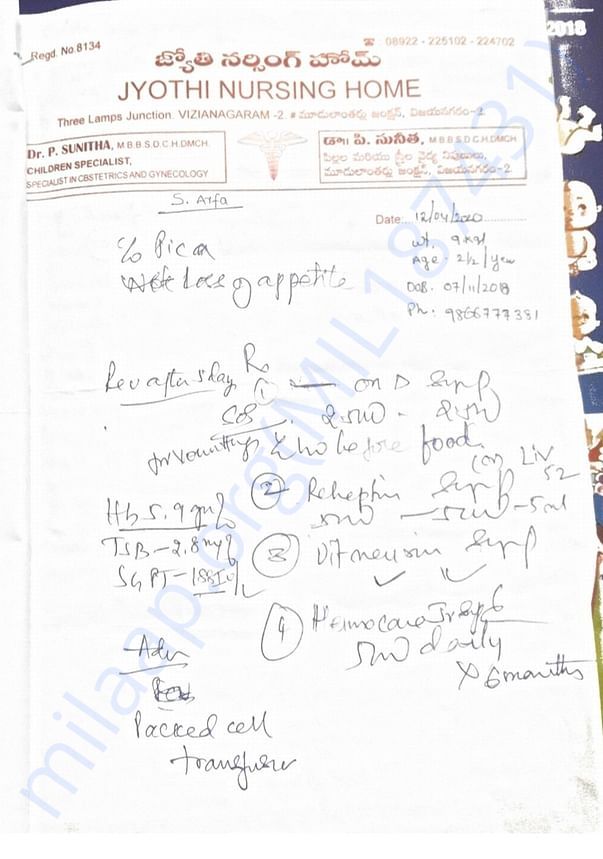 Regd. No.8134
☎ 08922 - 225102 - 224702
2018
జ్యోతి నర్సింగ్ హోమ్
JYOTHI NURSING HOME
Three Lamps Junction. VIZIANAGARAM -2. # మూడులాంతర్లు జంక్షన్, విజయనగరం-2.
Dr. P. SUNITHA, M.B.B.S.D.C.H.DMCH.
CHILDREN SPECIALIST,
SPECIALIST IN OBSTETRICS AND GYNECOLOGY
డా॥ పి. సునీత, M.B.B.S.D.C.H.DMCH
పిల్లల మరియు స్త్రీల వైద్య నిపుణులు,
మూడులాంతర్లు జంక్షన్, విజయనగరం-2.
S. Arfa
Date: 12/04/2020
wt. 9 kgs
Age - 2 1/2 / year
DOB. 07/11/2018
Ph: 9866777381
c/o Pica
loss of appetite
Rev after 5 day
Rx
① syrup
SOS 2.5ml - 2.5ml
for vomitings 1/2 hr before food
② syrup (or) Liv 52
5ml - 5ml - 5ml
Hb 5.9 gm%
TSB - 2.8 mg%
SGPT - 188 IU/L
③ Vitneurin syrup
④
5ml daily
x 6 months
Adv
Packed cell
transfusion
milaap.org(MIL187431)